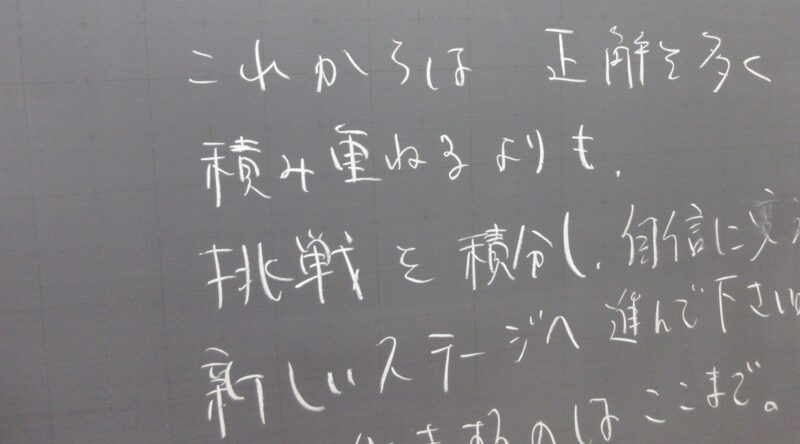 これからは 正解を多く
積み重ねるよりも、
挑戦を積分し、自信に変え
新しいステージへ進んで下さい
するのはここまで。